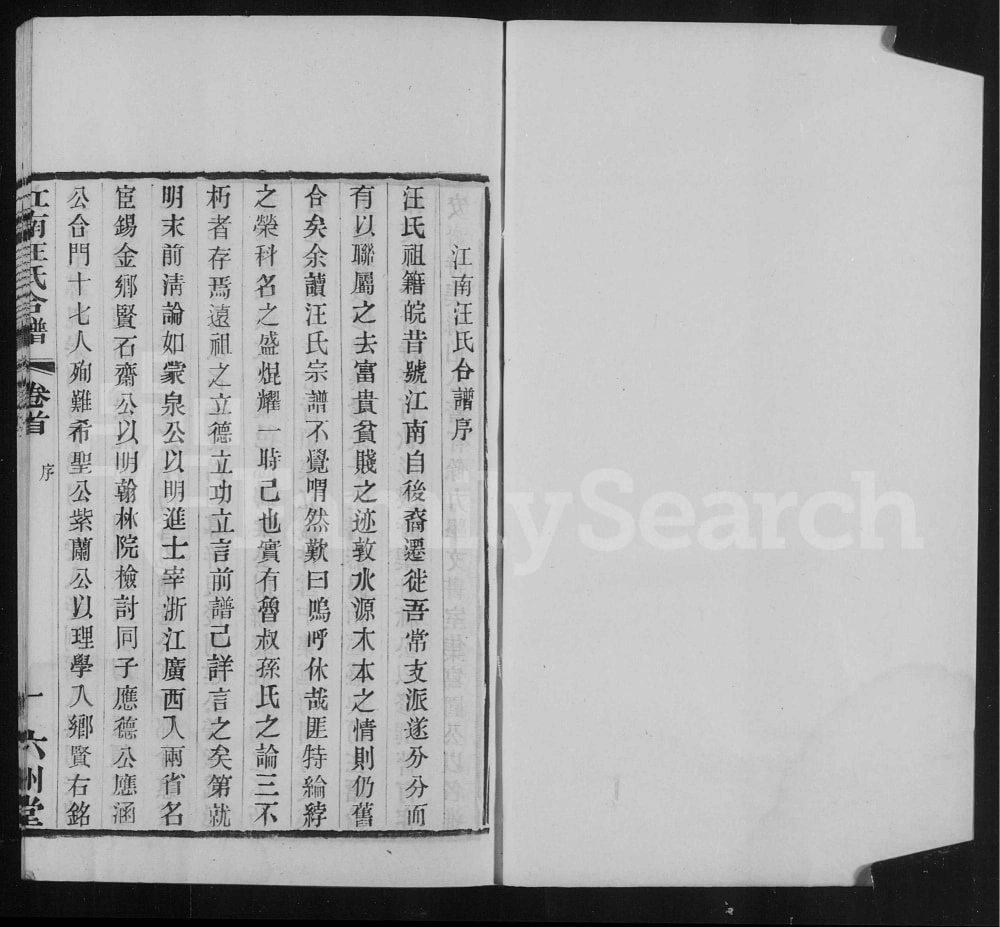 江南汪氏合譜序
汪氏祖籍皖昔號江南自後裔遷徙吾常支派遂分分而
有以聯屬之去富貴貧賤之迹敦水源木本之情則仍舊
合矣余讀汪氏宗譜不覺喟然歎曰嗚呼休哉匪特綸綍
之榮科名之盛焜耀一時己也實有魯叔孫氏之論三不
朽者存焉遠祖之立德立功立言前譜己詳言之矣第就
明末前淸論如蒙泉公以明進士宰浙江廣西入兩省名
宦錫金鄉賢石齋公以明翰林院檢討同子應德公應涵
公合門十七人殉難希聖公紫蘭公以理學入鄉賢右銘
江南汪氏合譜 卷首 序 一 六州堂
FamilySearch